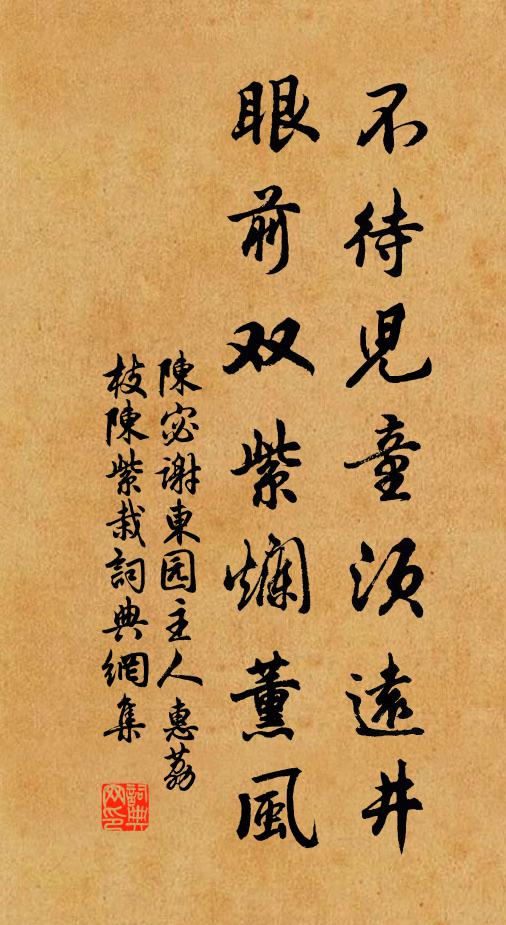 不待児童須遠井
眼前双紫爛薰風
陳宓謝東园主人惠荔
枝陳紫栽詞典網集
詞典網印